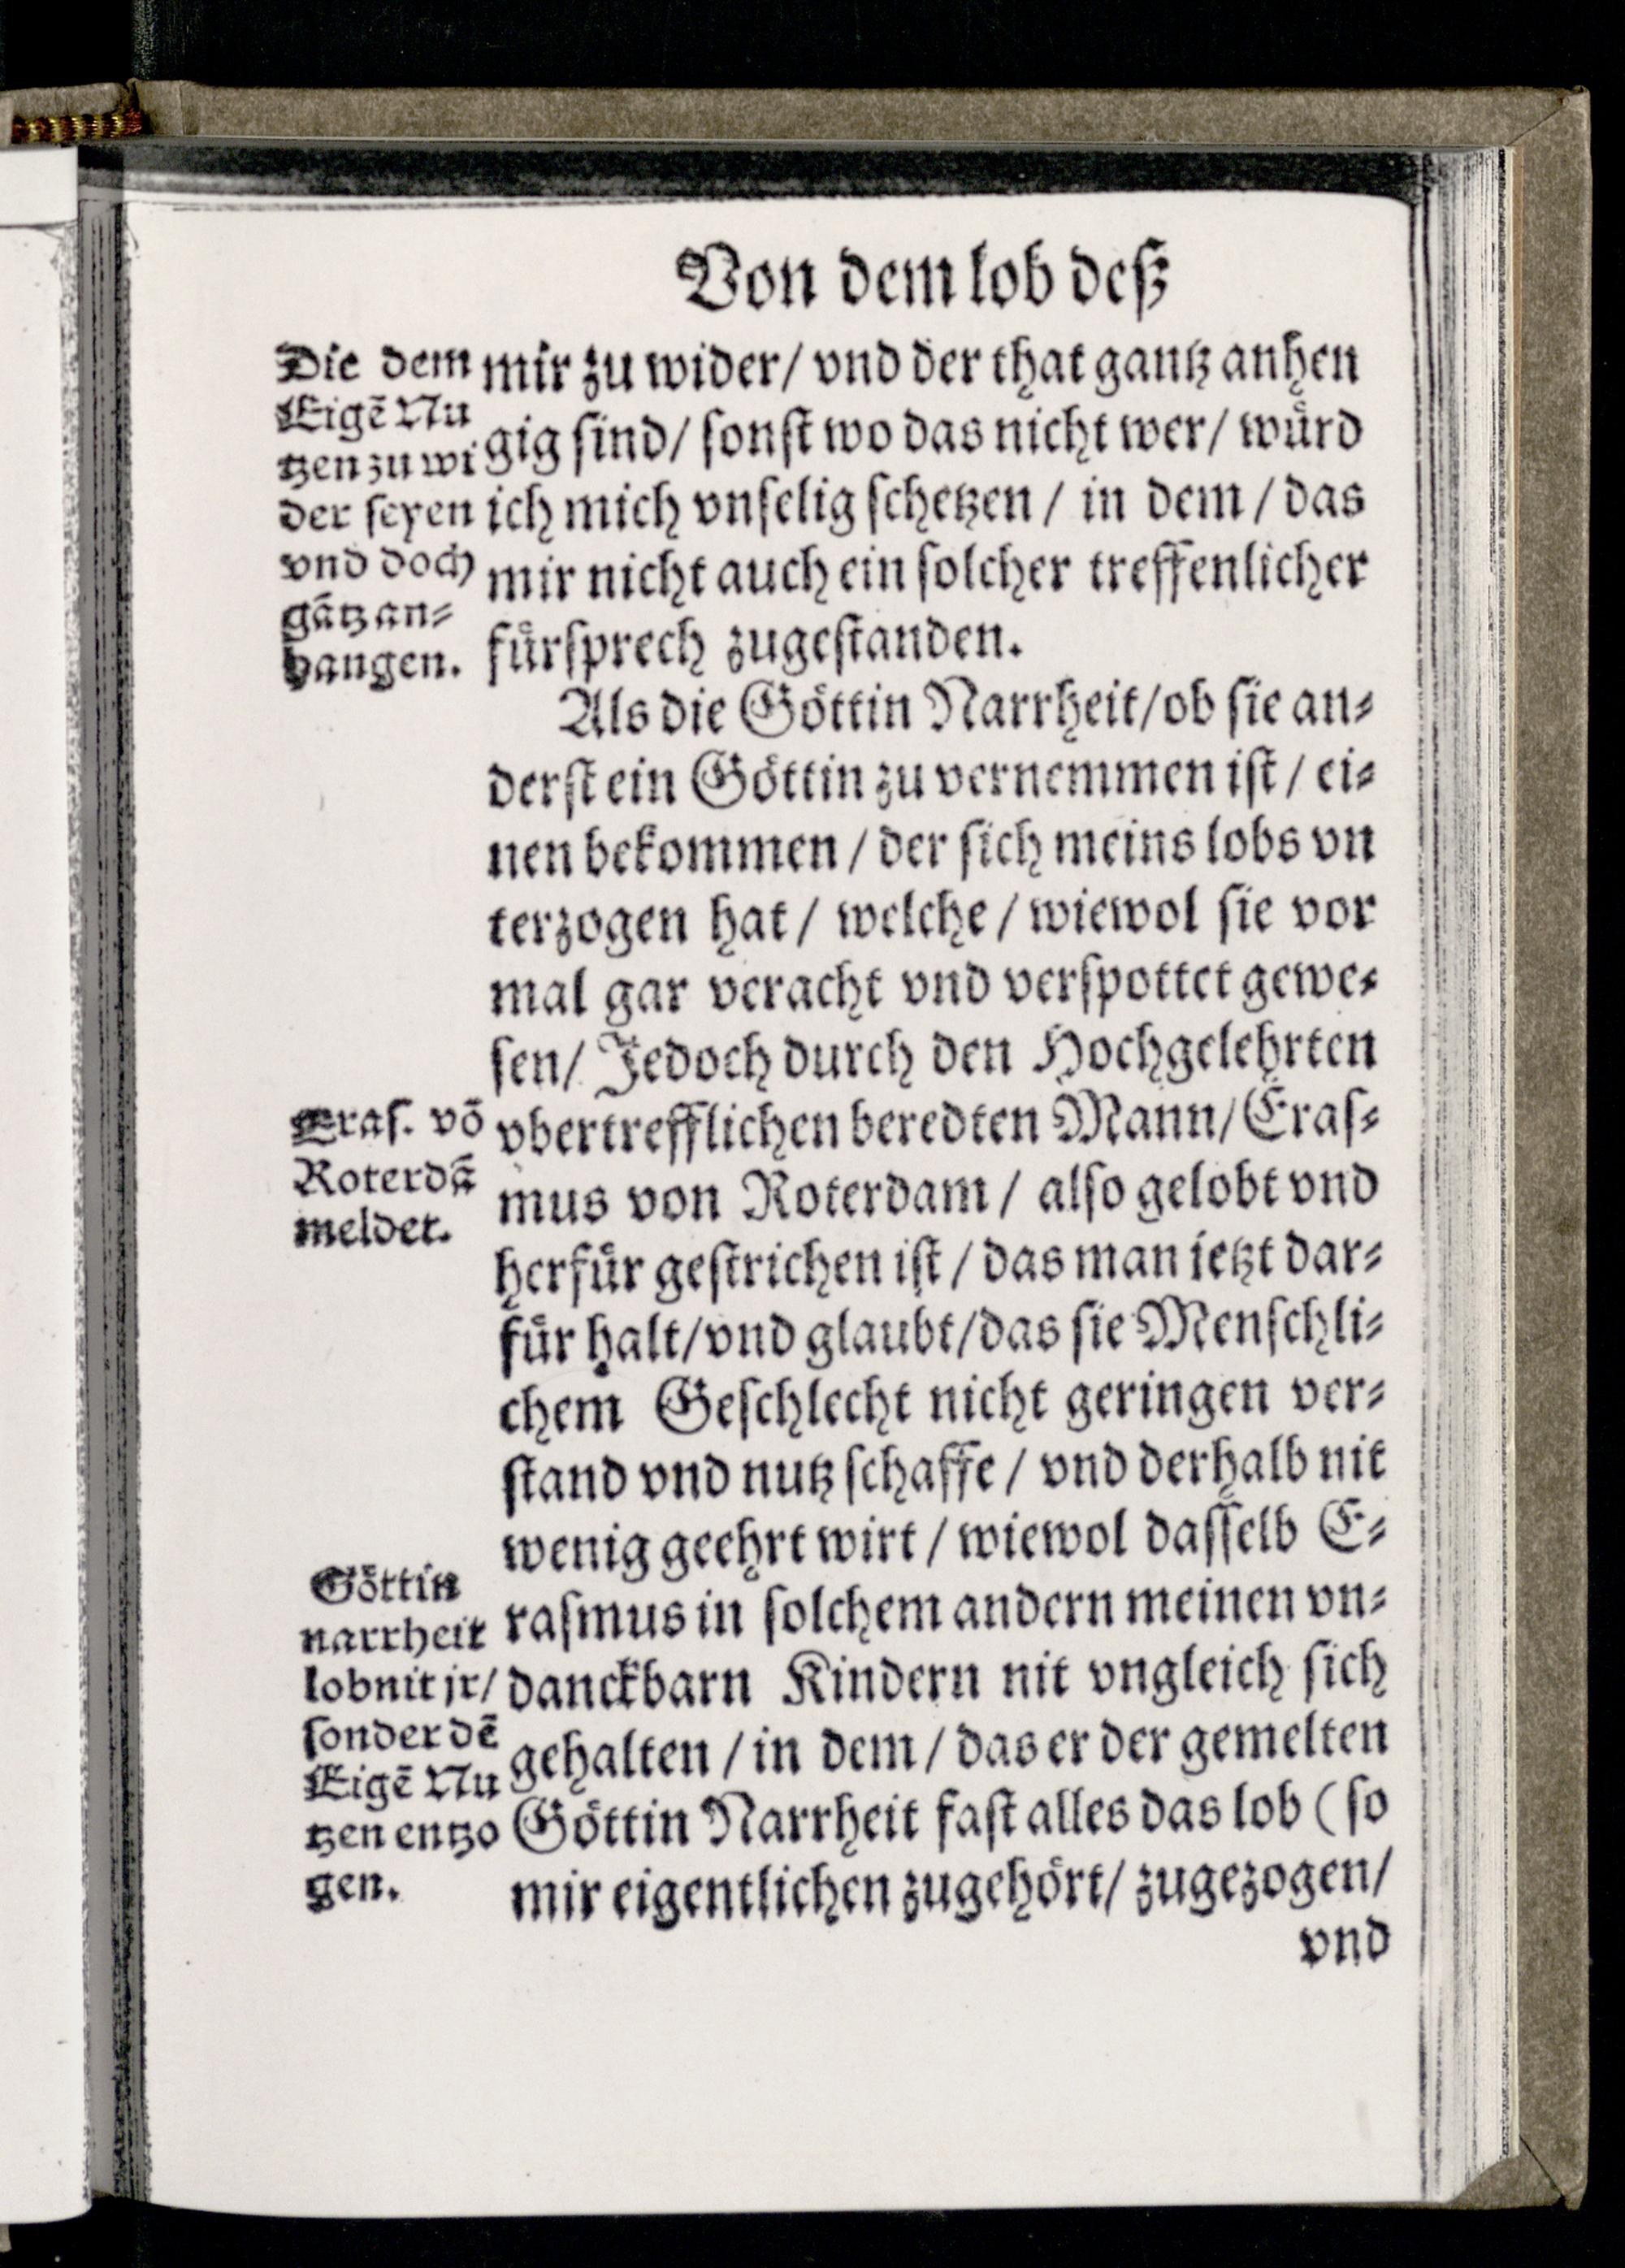 Von dem lob deß
Die dem
Eigē Nu
tzen zu wi
der seyen
vnd doch
gātz an⸗
hangen.
mir zu wider/ vnd der that gantz anhen
gig sind/ sonst wo das nicht wer/ wuͤrd
ich mich vnselig schetzen / in dem / das
mir nicht auch ein solcher treffenlicher
fuͤrsprech zugestanden.
Als die Goͤttin Narrheit/ob sie an⸗
derst ein Goͤttin zu vernemmen ist / ei⸗
nen bekommen / der sich meins lobs vn
terzogen hat / welche / wiewol sie vor
mal gar veracht vnd verspottet gewe⸗
sen/ Jedoch durch den Hochgelehrten
Eras. vō
Roterdā
meldet.
vbertrefflichen beredten Mann/ Eras⸗
mus von Roterdam / also gelobt vnd
herfuͤr gestrichen ist / das man jetzt dar⸗
fuͤr halt/vnd glaubt/das sie Menschli⸗
chem Geschlecht nicht geringen ver⸗
stand vnd nutz schaffe / vnd derhalb nit
wenig geehrt wirt / wiewol dasselb E⸗
Goͤttin
narrheit
lobnit jr/
sonder dē
Eigē Nu
tzen entzo
gen.
rasmus in solchem andern meinen vn⸗
danckbarn Kindern nit vngleich sich
gehalten / in dem / das er der gemelten
Goͤttin Narrheit fast alles das lob (so
mir eigentlichen zugehoͤrt/ zugezogen/
vnd